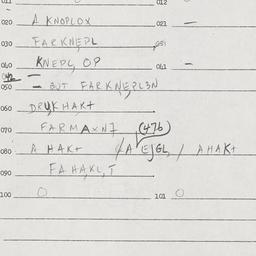 011 012
020 A KNOPLOX 021 —
030 FARKNEPL 031
040 KNEPL, OP 041 —
050 — BUT FARKNEPL3N
060 DRUKHAK+
070 FARMAXN7 (476)
080 A HAK+ /A EJGL / AHAK+
090 FAHAKL,T
100 O 101 O